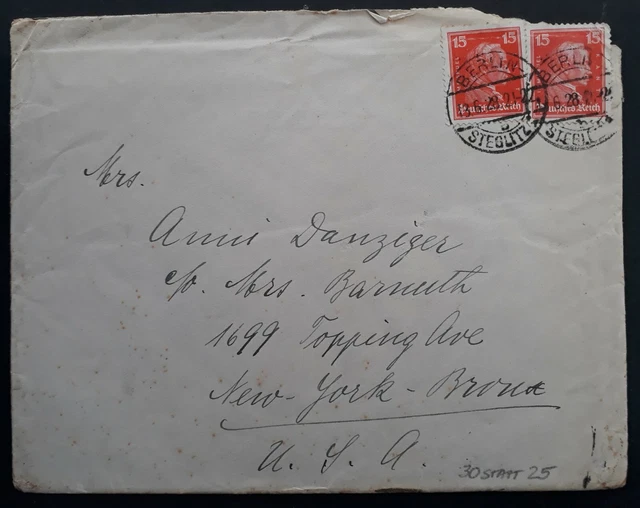 15 15
BERLIN BERLIN
Deutsches Reich Deutsches Reich
STEGLITZ STEGLITZ
Mrs.
Anni Danziger
c/o. Mrs. Barnuth
1699 Topping Ave
New-York-Bronx
U. S. A.
30 STATT 25